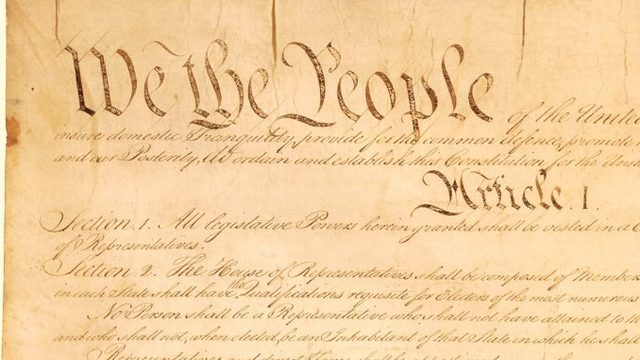 We the People of the United
insure domestic Tranquility, provide for the common defence, promote
and our Posterity, do ordain and establish this Constitution for the Unit
Article. I.
Section. 1. All legislative Powers herein granted shall be vested in a C
of Representatives.
Section. 2. The House of Representatives shall be composed of Member
in each State shall have the Qualifications requisite for Electors of the most numerous
No Person shall be a Representative who shall not have attained to th
and who shall not, when elected, be an Inhabitant of that State in which he sha
Representatives and direct Taxes shall be